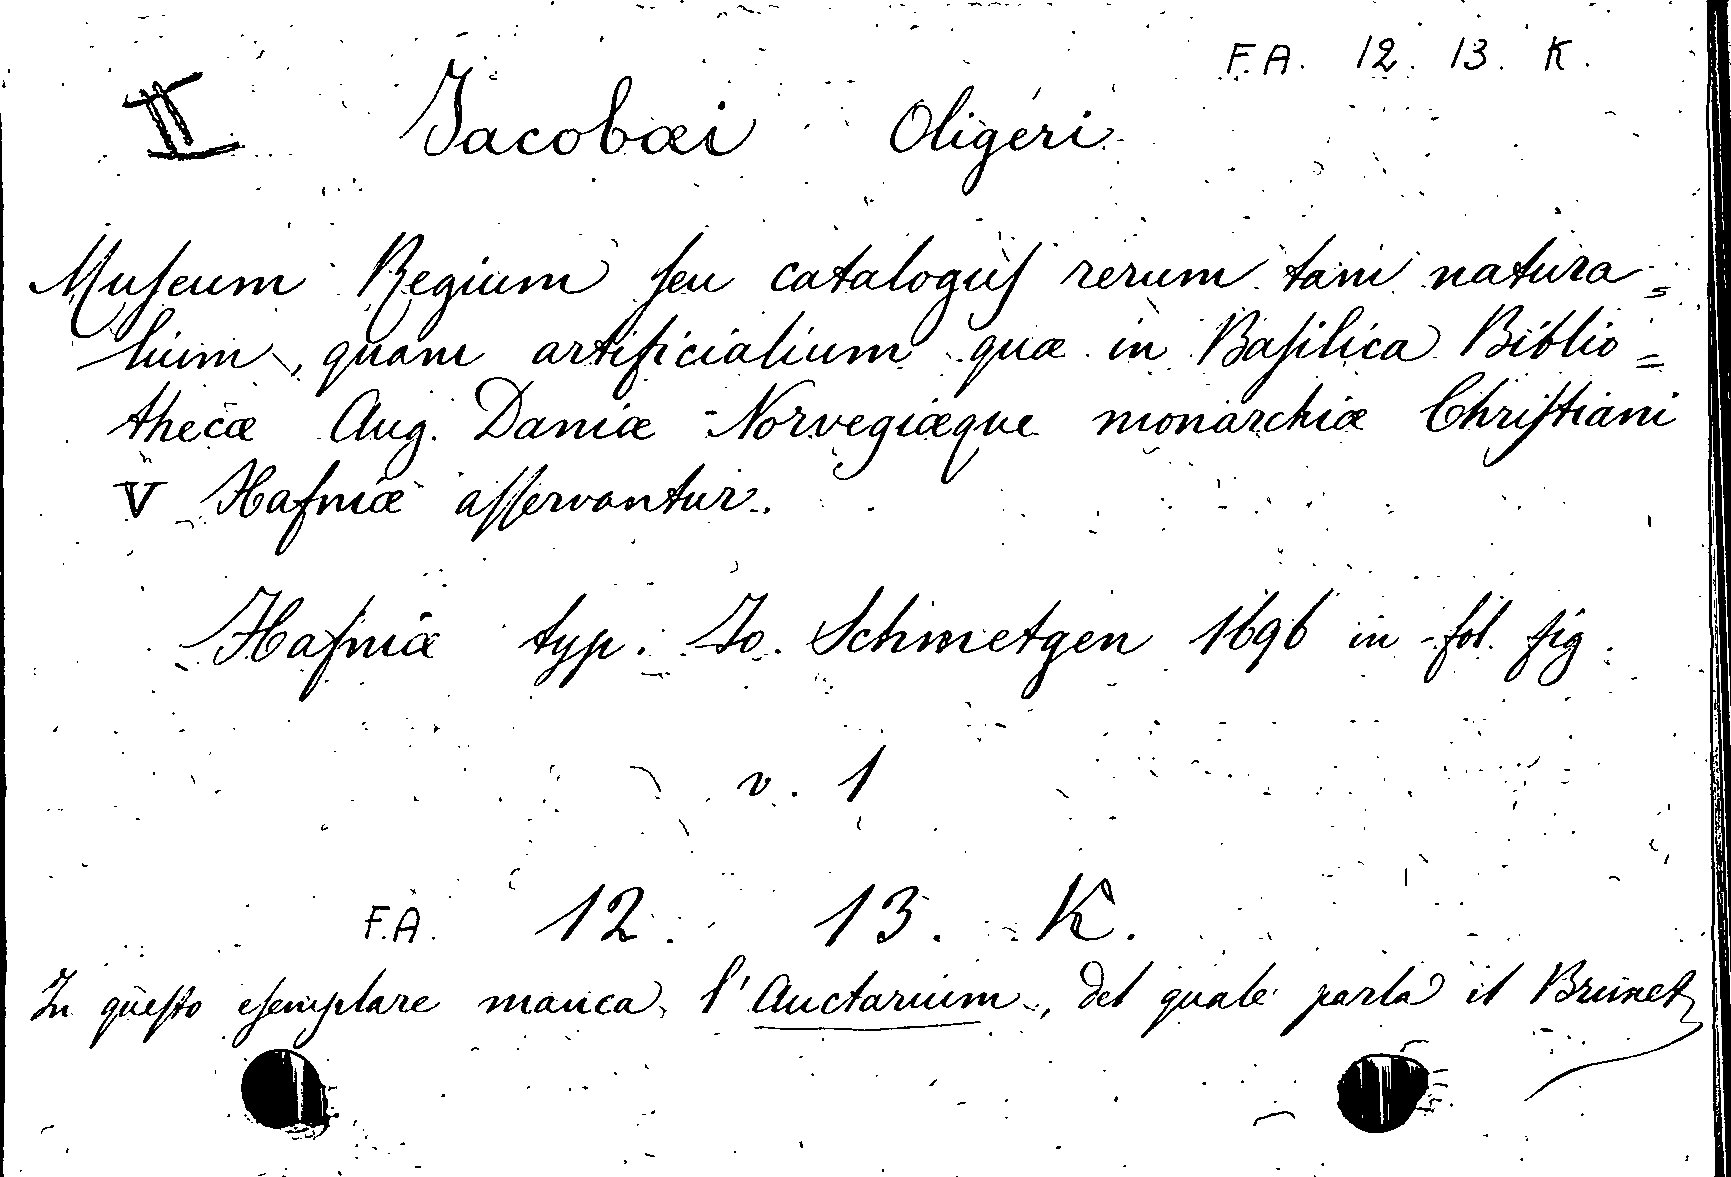 F.A. 12. 13. K.
II Jacobæi Oligeri
Museum Regium seu catalogus rerum tam natura=
lium, quam artificialium quæ in Basilica Biblio=
thecæ Aug. Daniæ Norvegiæque monarchiæ Christiani
V Hafniæ asservantur.
Hafniæ typ. Jo. Schmetgen 1696 in fol. fig.
v. 1
F.A. 12. 13. K.
In questo esemplare manca l'Auctarium, del quale parla il Brunet